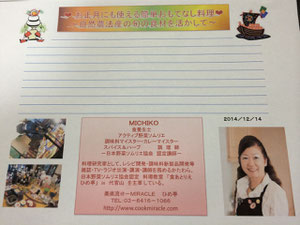 ～お正月にも使える簡単おもてなし料理❤
自然農法産の旬の食材を活かして～
2014/12/14
MICHIKO
栄養士
アクティブ野菜ソムリエ
調味料マイスター・カレーマイスター
スパイス&ハーブ 調理師
－日本野菜ソムリエ協会 認定講師－
料理研究家として、レシピ開発・調味料新製品開発等
雑誌・TV・ラジオ出演・講演・講師を務めるかたわら、
日本野菜ソムリエ協会認定 料理教室
ひめ亭」in 代官山 を主宰している。
MIRACLE ひめ亭
http://www.cookmiracle.com